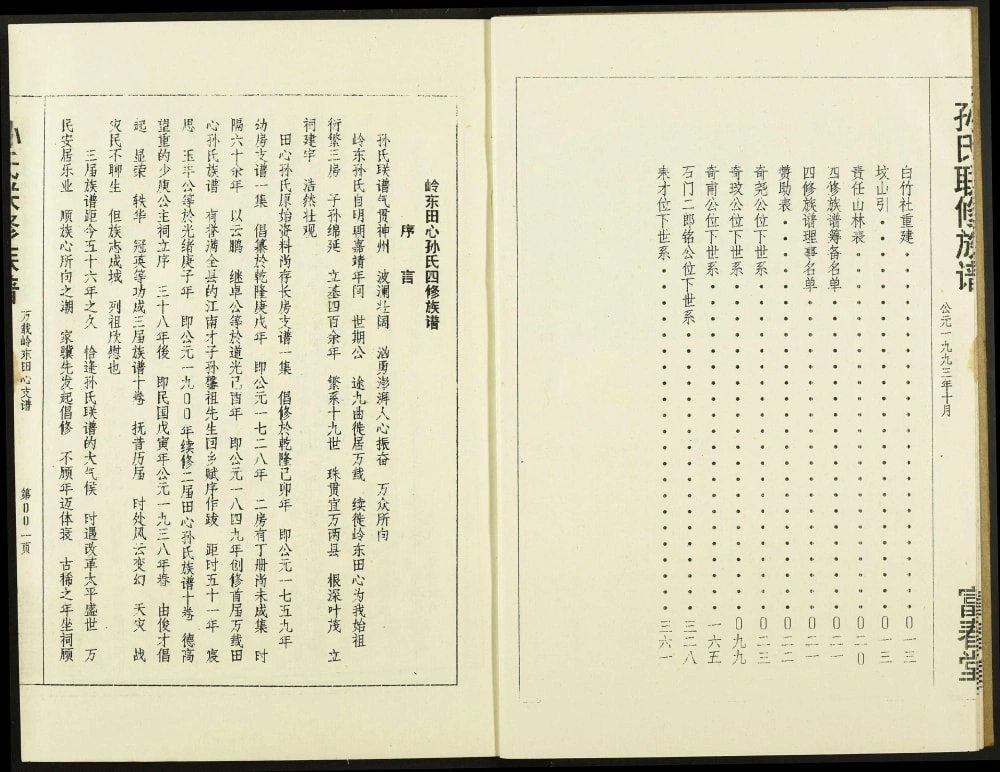 孙氏联修族谱
富春堂
公元一九九三年十月
白竹社重建 〇一三
坟山引 〇一三
责任山林表 〇二〇
四修族谱筹备名单 〇二一
四修族谱理事名单 〇二一
赞助表 〇二二
奇尧公位下世系 〇二三
奇玫公位下世系 〇九九
奇甫公位下世系 一六五
石门二郎铭公位下世系 三二八
来才位下世系 三六一
岭东田心孙氏四修族谱
序言
孙氏联谱气贯神州 波澜壮阔 汹勇澎湃人心振奋 万众所向
岭东孙氏自明朝嘉靖年间 世期公 途九曲徙居万载 续徙岭东田心为我始祖
衍繁三房 子孙绵延 立基四百余年 繁系十九世 珠贯宜万两县 根深叶茂 立
祠建宇 浩然壮观
田心孙氏原始资料尚存长房支谱一集 倡修於乾隆己卯年 即公元一七五九年
幼房支谱一集 倡纂於乾隆庚戌年 即公元一七二八年 二房有丁册尚未成集 时
隔六十余年 以云鹏 继卓公等於道光己酉年 即公元一八四九年创修首届万载田
心孙氏族谱 有誉满全县的江南才子孙馨祖先生回乡赋序作跋 距时五十一年 宸
思 玉丰公等於光绪庚子年 即公元一九〇〇年续修二届田心孙氏族谱十卷 德高
望重的少庚公主祠立序 三十八年後 即民国戊寅年公元一九三八年春 由俊才倡
起 显荣 轶华 冠英等功成三届族谱十卷 抚昔历届 时处风云变幻 天灾 战
灾民不聊生 但族志成城 列祖欣慰也
三届族谱距今五十六年之久 恰逢孙氏联谱的大气候 时遇改革太平盛世 万
民安居乐业 顺族心所向之潮 家骥先发起倡修 不顾年迈体衰 古稀之年坐祠顾
孙氏联修族谱
万载岭东田心支谱
第〇〇一页